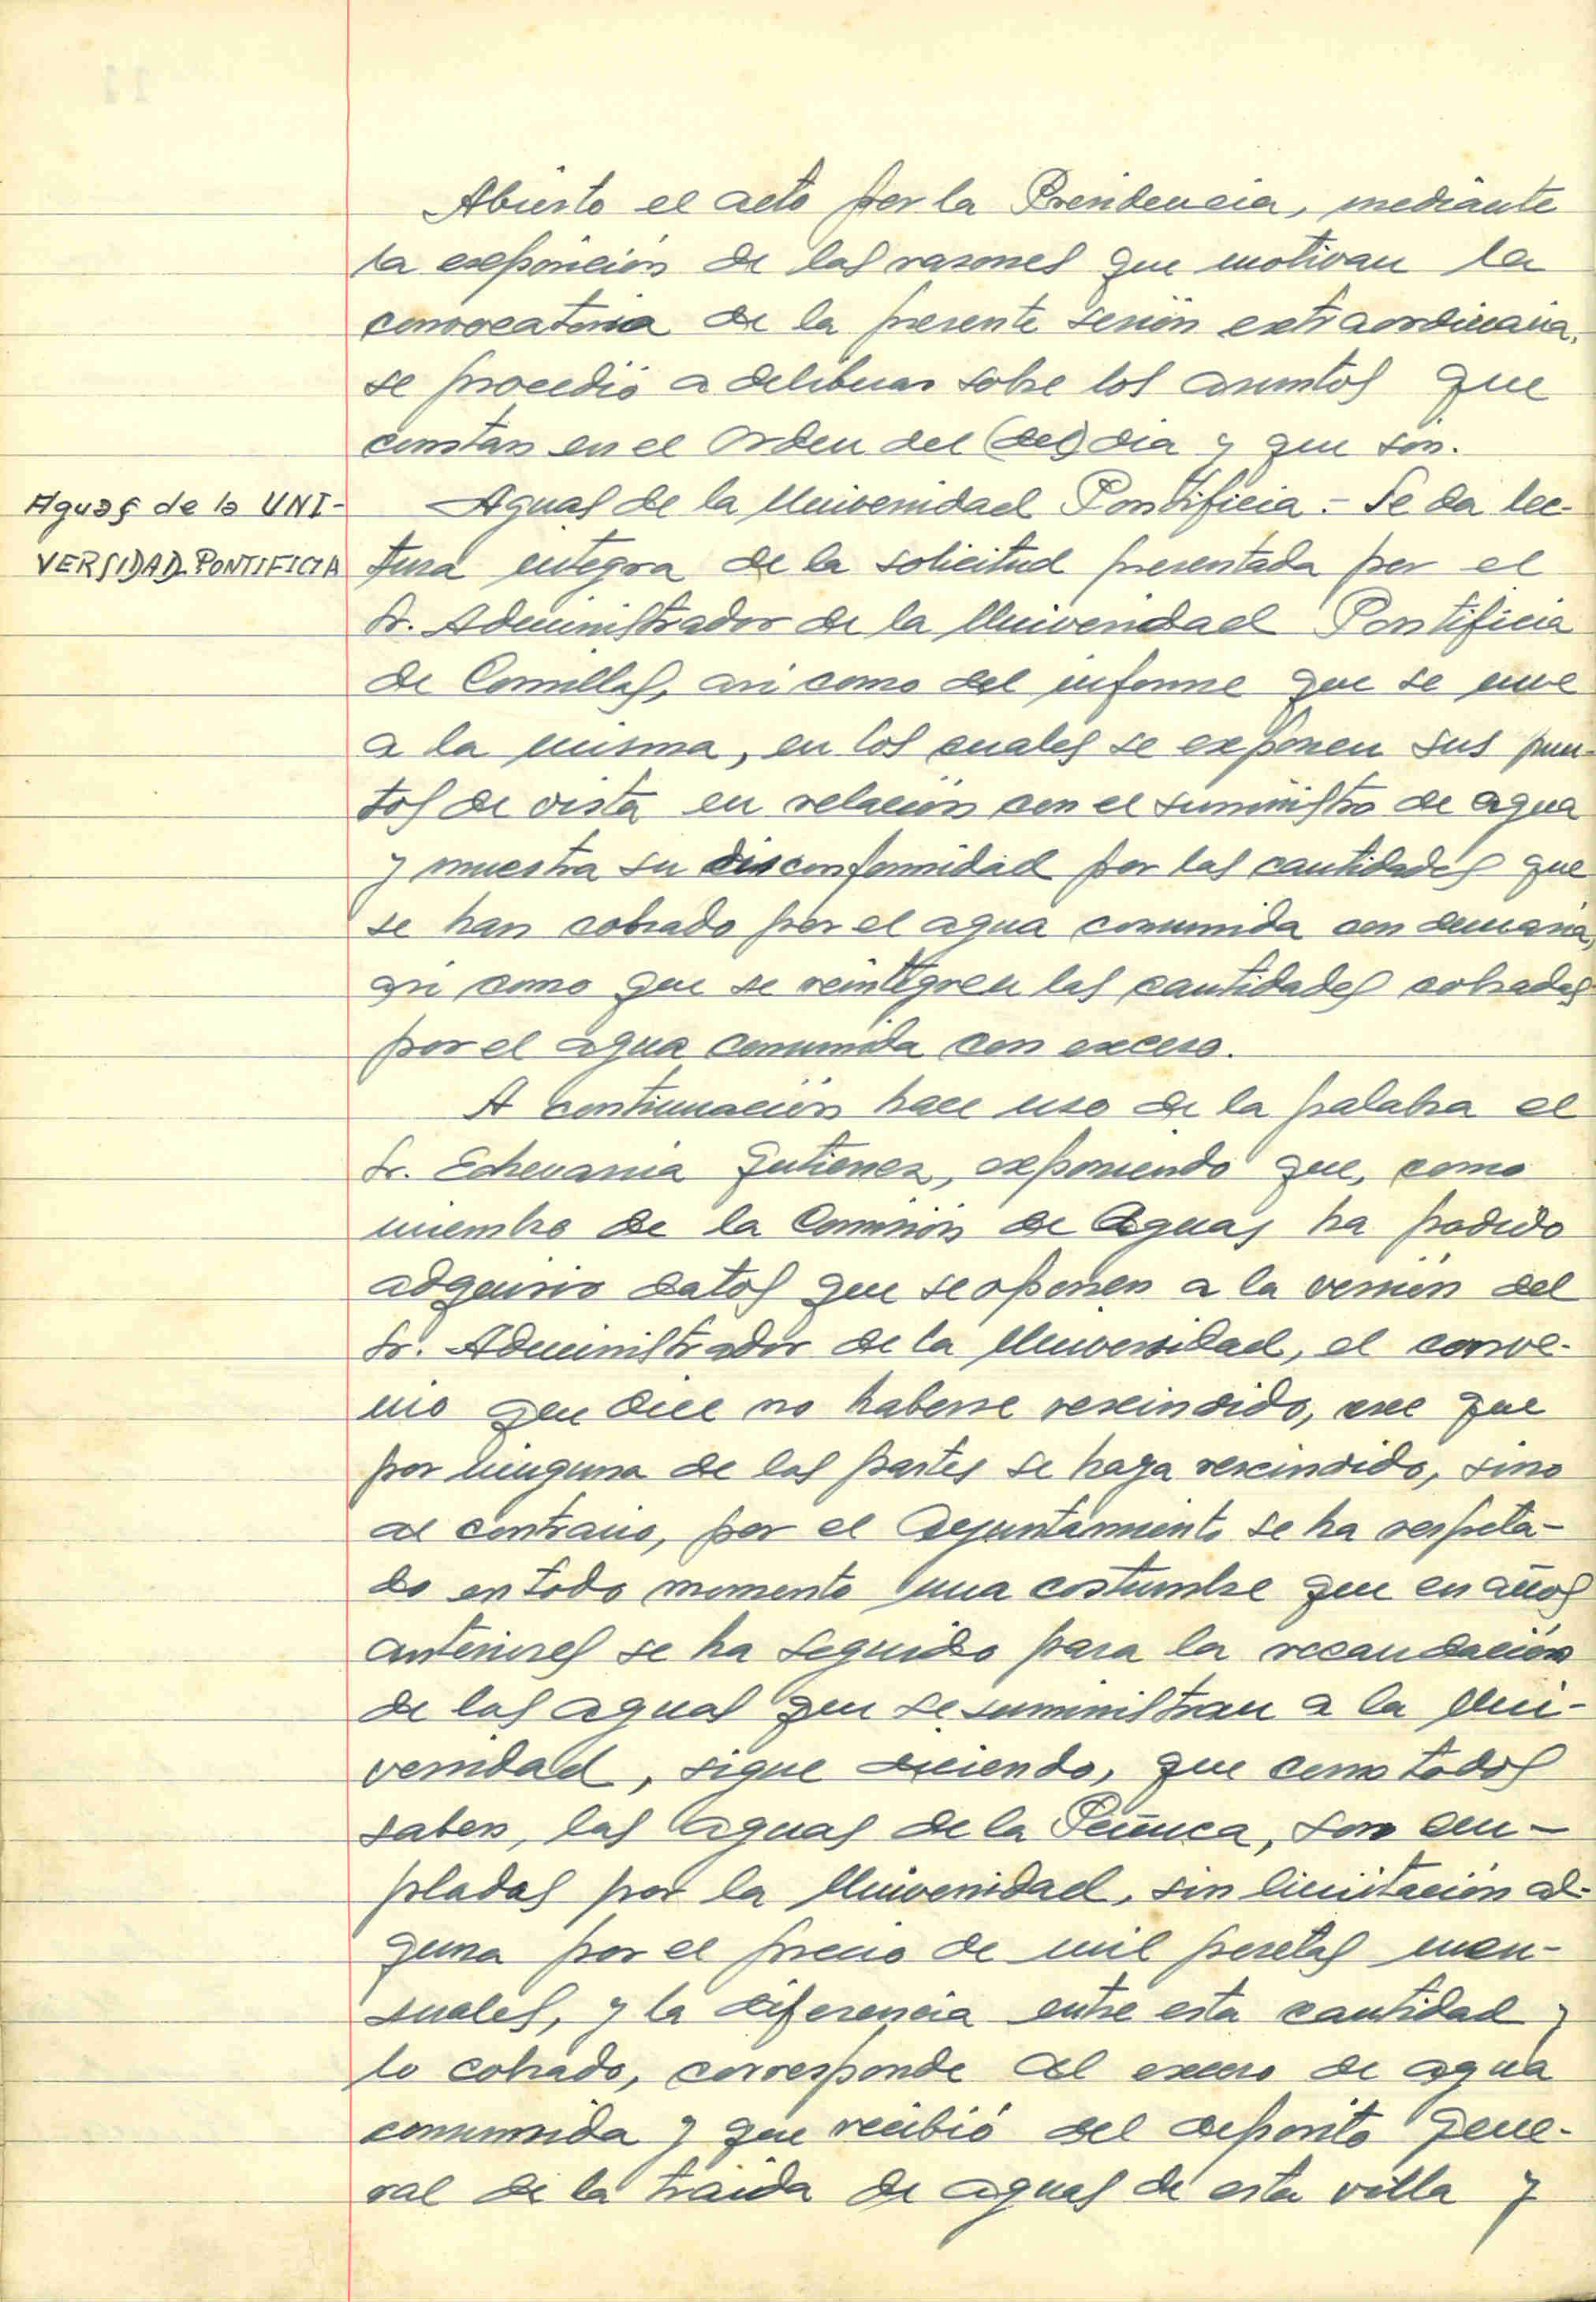 Abierto el acto por la Presidencia, mediante
la exposición de las razones que motivan la
convocatoria de la presente sesión extraordinaria,
se procedió a deliberar sobre los asuntos que
constan en el Orden del (del) dia y que son.
Aguas de la UNI-
VERSIDAD PONTIFICIA
Aguas de la Universidad Pontificia.- Se da lec-
tura integra de la solicitud presentada por el
Sr. Administrador de la Universidad Pontificia
de Comillas, asi como del informe que se une
a la misma, en los cuales se exponen sus pun-
tos de vista en relación con el suministro de agua
y muestra su disconformidad por las cantidades que
se han cobrado por el agua consumida con demasia,
asi como que se reintegren las cantidades cobradas
por el agua consumida con exceso.
A continuación hace uso de la palabra el
Sr. Echevarria Gutierrez, exponiendo que, como
miembro de la Comisión de Aguas ha podido
adquirir datos que se oponen a la versión del
Sr. Administrador de la Universidad, el conve-
nio que dice no haberse rescindido, cree que
por ninguna de las partes se haya rescindido, sino
al contrario, por el Ayuntamiento se ha respeta-
do en todo momento una costumbre que en años
anteriores se ha seguido para la recaudación
de las aguas que se suministran a la Uni-
versidad, sigue diciendo, que como todos
saben, las aguas de la Peñuca, son em-
pladas por la Universidad, sin limitación al-
guna por el precio de mil pesetas men-
suales, y la diferencia entre esta cantidad y
lo cobrado, corresponde al exceso de agua
consumida y que recibió del deposito gene-
ral de la traida de aguas de esta villa y